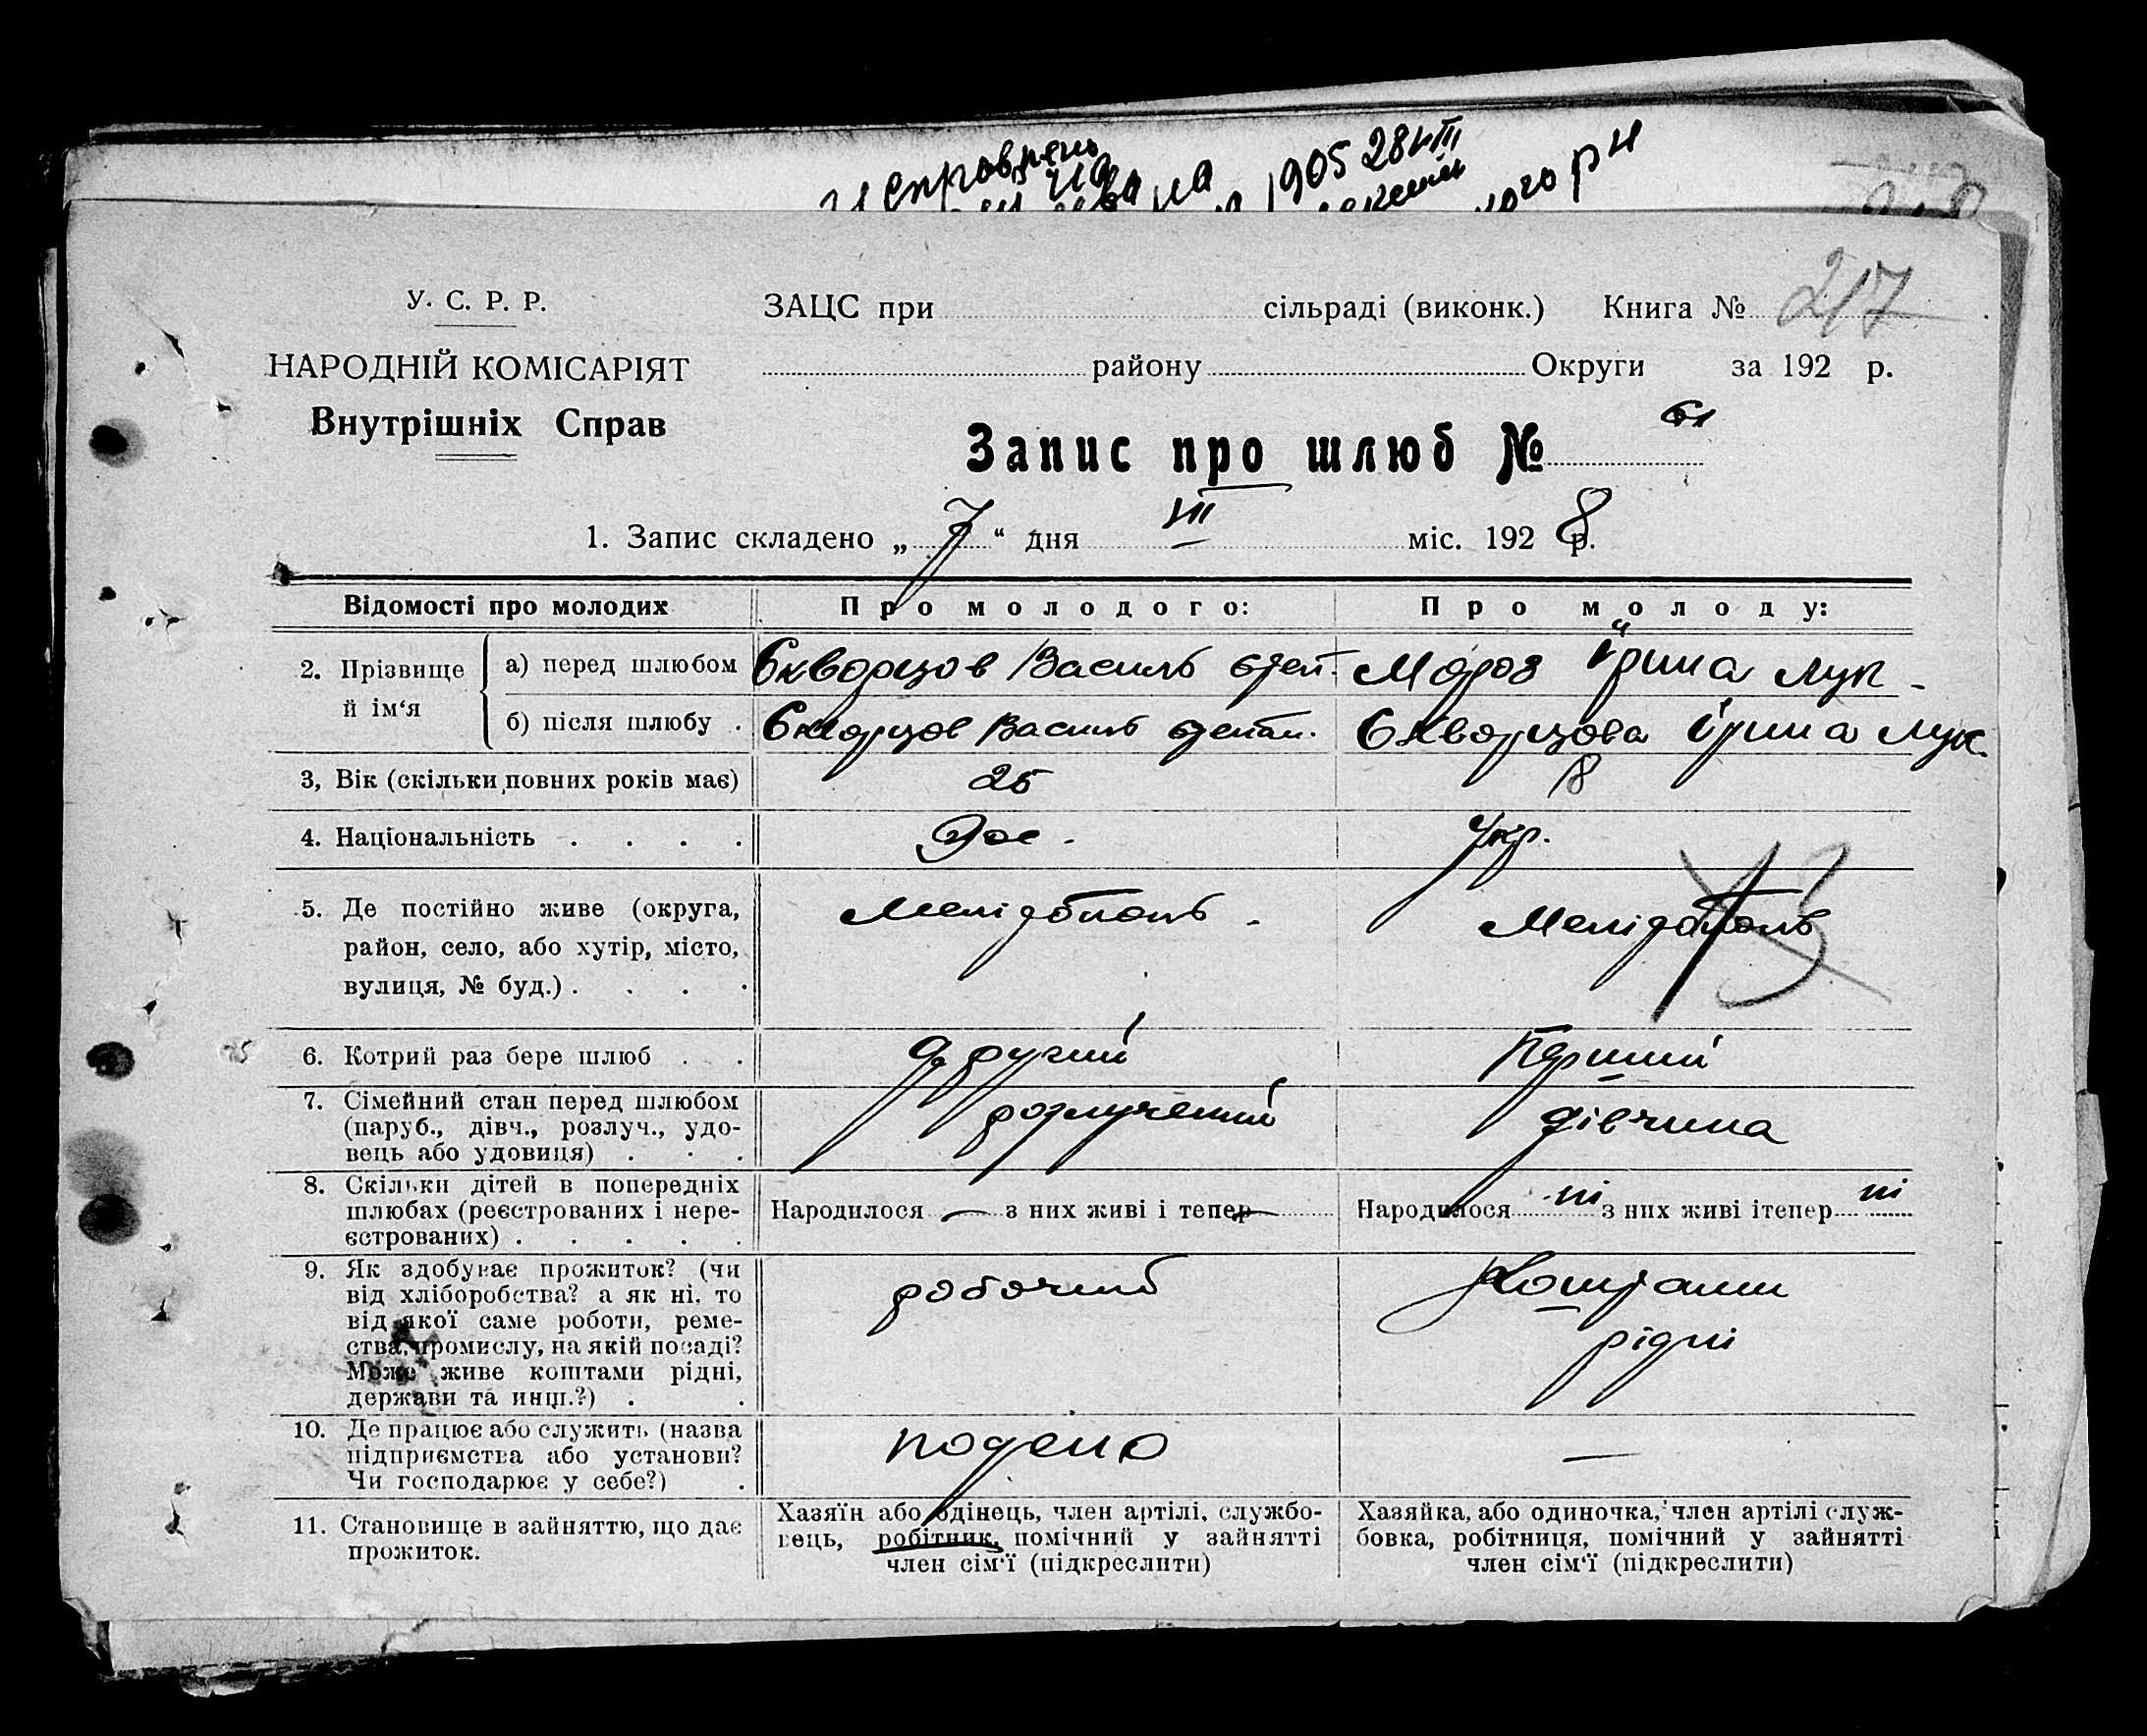 Исправлень
1905 28 VIII
У. С. Р. Р.
НАРОДНІЙ КОМІСАРІЯТ
Внутрішніх Справ
ЗАЦС при сільраді (виконк.) Книга № 217
району Округи за 192 р.
Запис про шлюб № 61
1. Запис складено „ 7 “ дня III міс. 192 8 р.
Відомості про молодих
Про молодого:
Про молоду:
2. Прізвище й ім‘я
а) перед шлюбом
Скворцов Василь Степ.
Мороз Ірина Лук
б) після шлюбу .
Скворцов Василь Степан.
Скворцова Ірина Лук.
3, Вік (скільки повних років має)
25
18
4. Національність . . . .
Рос.
Укр.
5. Де постійно живе (округа,
район, село, або хутір, місто,
вулиця, № буд.) . . . .
Мелідополь
Мелідополь
6. Котрий раз бере шлюб . .
другий
Перший
7. Сімейний стан перед шлюбом
(паруб., дівч., розлуч., удо-
вець або удовиця) . . .
розлучений
дівчина
8. Скільки дітей в попередніх
шлюбах (реєстрованих і нере-
єстрованих) . . . . .
Народилося — з них живі і тепер —
Народилося ні з них живі ітепер ні
9. Як здобуває прожиток? (чи
від хліборобства? а як ні, то
від якої саме роботи, реме-
ства, промислу, на якій посаді?
Може живе коштами рідні,
держави та инш.?) . .
робочий
Коштами
рідні
10. Де працює або служить (назва
підприємства або установи?
Чи господарює у себе?) .
подено
—
11. Становище в зайняттю, що дає
прожиток.
Хазяїн або одінець, член артілі, службо-
вець, робітник, помічний у зайнятті
член сім‘ї (підкреслити)
Хазяйка, або одиночка, член артілі служ-
бовка, робітниця, помічний у зайнятті
член сім‘ї (підкреслити)